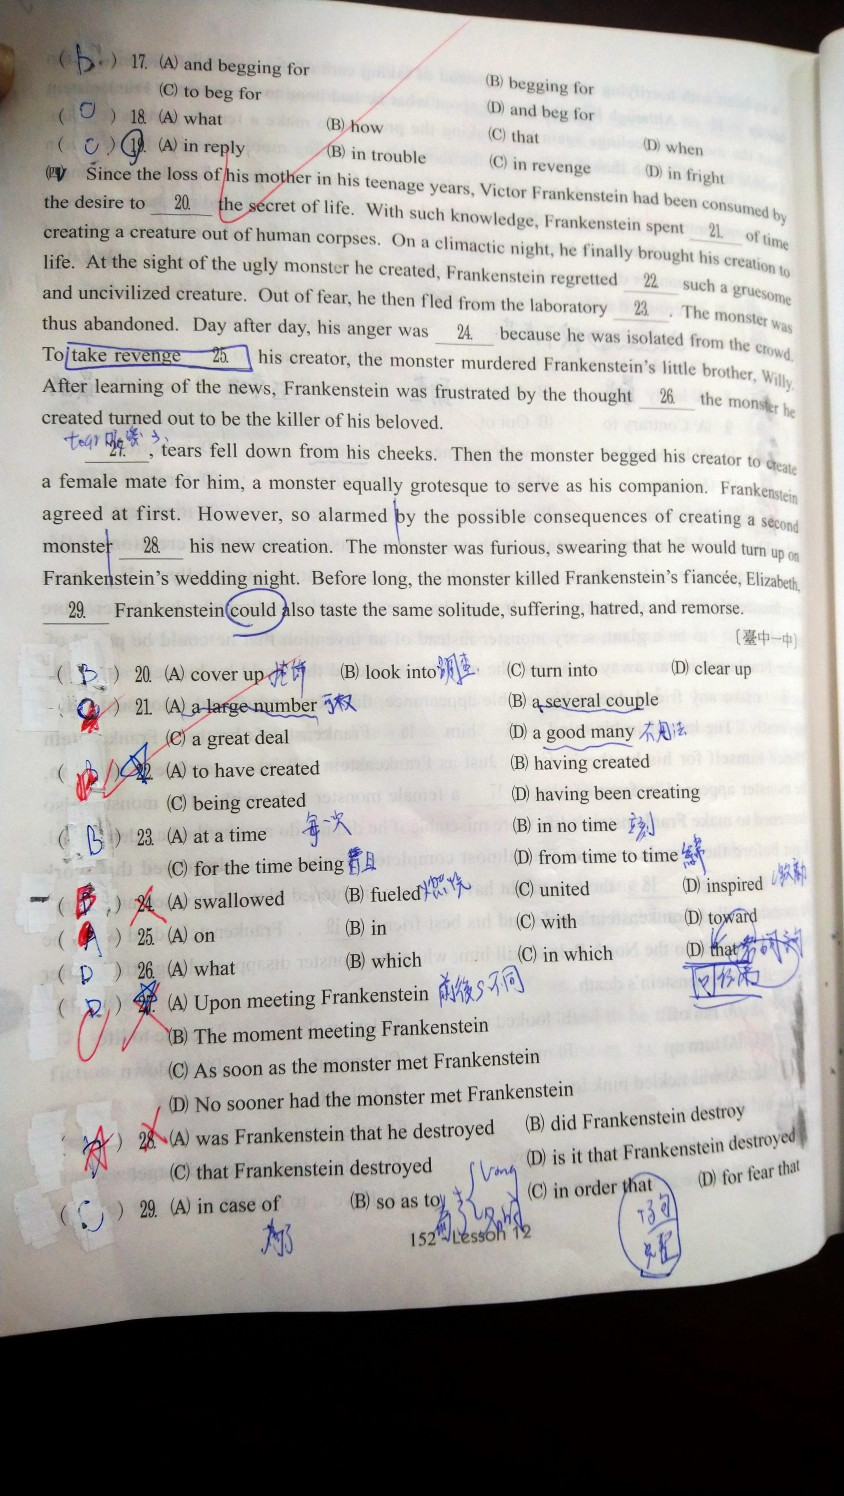 ( b. ) 17. (A) and begging for (B) begging for
(C) to beg for (D) and beg for
( ) 18. (A) what (B) how (C) that (D) when
( C ) 19. (A) in reply (B) in trouble (C) in revenge (D) in fright
(四) Since the loss of his mother in his teenage years, Victor Frankenstein had been consumed by
the desire to 20. the secret of life. With such knowledge, Frankenstein spent 21. of time
creating a creature out of human corpses. On a climactic night, he finally brought his creation to
life. At the sight of the ugly monster he created, Frankenstein regretted 22. such a gruesome
and uncivilized creature. Out of fear, he then fled from the laboratory 23. . The monster was
thus abandoned. Day after day, his anger was 24. because he was isolated from the crowd.
To take revenge 25. his creator, the monster murdered Frankenstein's little brother, Willy.
After learning of the news, Frankenstein was frustrated by the thought 26. the monster he
created turned out to be the killer of his beloved.
27. , tears fell down from his cheeks. Then the monster begged his creator to create
a female mate for him, a monster equally grotesque to serve as his companion. Frankenstein
agreed at first. However, so alarmed by the possible consequences of creating a second
monster 28. his new creation. The monster was furious, swearing that he would turn up on
Frankenstein's wedding night. Before long, the monster killed Frankenstein's fiancée, Elizabeth,
29. Frankenstein could also taste the same solitude, suffering, hatred, and remorse.
〔臺中一中〕
( B ) 20. (A) cover up 掩飾 (B) look into 調查 (C) turn into (D) clear up
( ) 21. (A) a large number 可數 (B) a several couple
(C) a great deal (D) a good many 不用法
( ) 22. (A) to have created (B) having created
(C) being created (D) having been creating
( B ) 23. (A) at a time 每一次 (B) in no time 立刻
(C) for the time being 暫且 (D) from time to time
( B ) 24. (A) swallowed (B) fueled 燃燒 (C) united (D) inspired
( A ) 25. (A) on (B) in (C) with (D) toward
( D ) 26. (A) what (B) which (C) in which (D) that
( D ) 27. (A) Upon meeting Frankenstein 前後S不同
(B) The moment meeting Frankenstein
(C) As soon as the monster met Frankenstein
(D) No sooner had the monster met Frankenstein
( A ) 28. (A) was Frankenstein that he destroyed (B) did Frankenstein destroy
(C) that Frankenstein destroyed (D) is it that Frankenstein destroyed
( C ) 29. (A) in case of (B) so as to (C) in order that (D) for fear that
為了
子句
152 Lesson 12